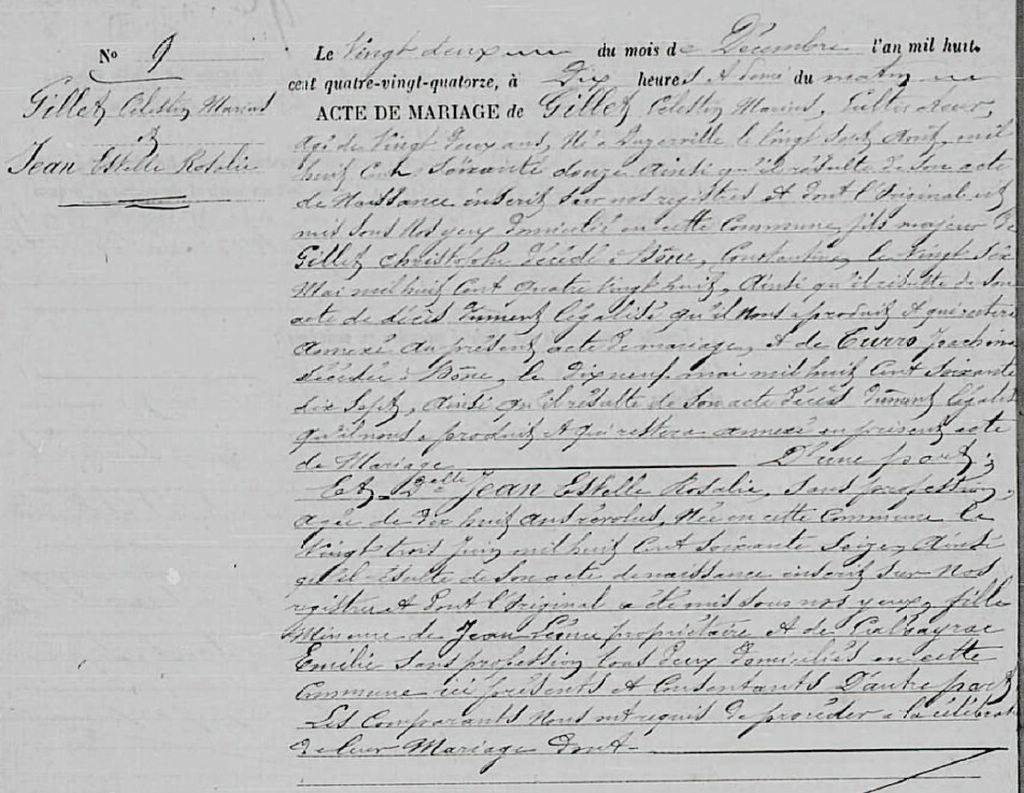 N° 9
Gillet Celestin Marius
&
Jean Estelle Rosalie
Le Vingt deux du mois de Décembre l'an mil huit
cent quatre-vingt-quatorze, à Dix heures & demi du matin
ACTE DE MARIAGE de Gillet Celestin Marius, Cultivateur,
âgé de Vingt deux ans, Né à Duzerville le vingt sept Août mil
huit Cent Soixante douze Ainsi qu'il résulte de son acte
de Naissance inscrit sur nos registres et dont l'Original est
mis sous Nos yeux domicilié en cette Commune, fils majeur de
Gillet Christophe décédé à Bône, Constantine, le Vingt Six
Mai mil huit Cent quatre Vingt huit, Ainsi qu'il résulte de son
acte de décès dûment légalisé qu'il Nous a produit & qui restera
annexé au présent acte de mariage, & de Turro Joachima
décédée à Bône, le Dix neuf mai mil huit Cent Soixante
dix Sept, Ainsi qu'il résulte de son acte décès dûment légalisé
qu'il nous a produit & qui restera annexé au présent acte
de Mariage D'une part;
Et Delle Jean Estelle Rosalie, sans profession,
agée de Dix huit ans révolus, Née en cette Commune le
Vingt trois Juin mil huit Cent Soixante Seize, Ainsi
qu'il résulte de son acte de naissance inscrit sur Nos
registres & Dont l'Original a été mis sous nos yeux, fille
Mineure de Jean Léonce propriétaire & de Calbayrac
Emilie sans profession tous deux domiciliés en cette
Commune ici présents et Consentants D'autre part
Les Comparants Nous ont requis de procéder a la célébrat
de leur Mariage dont